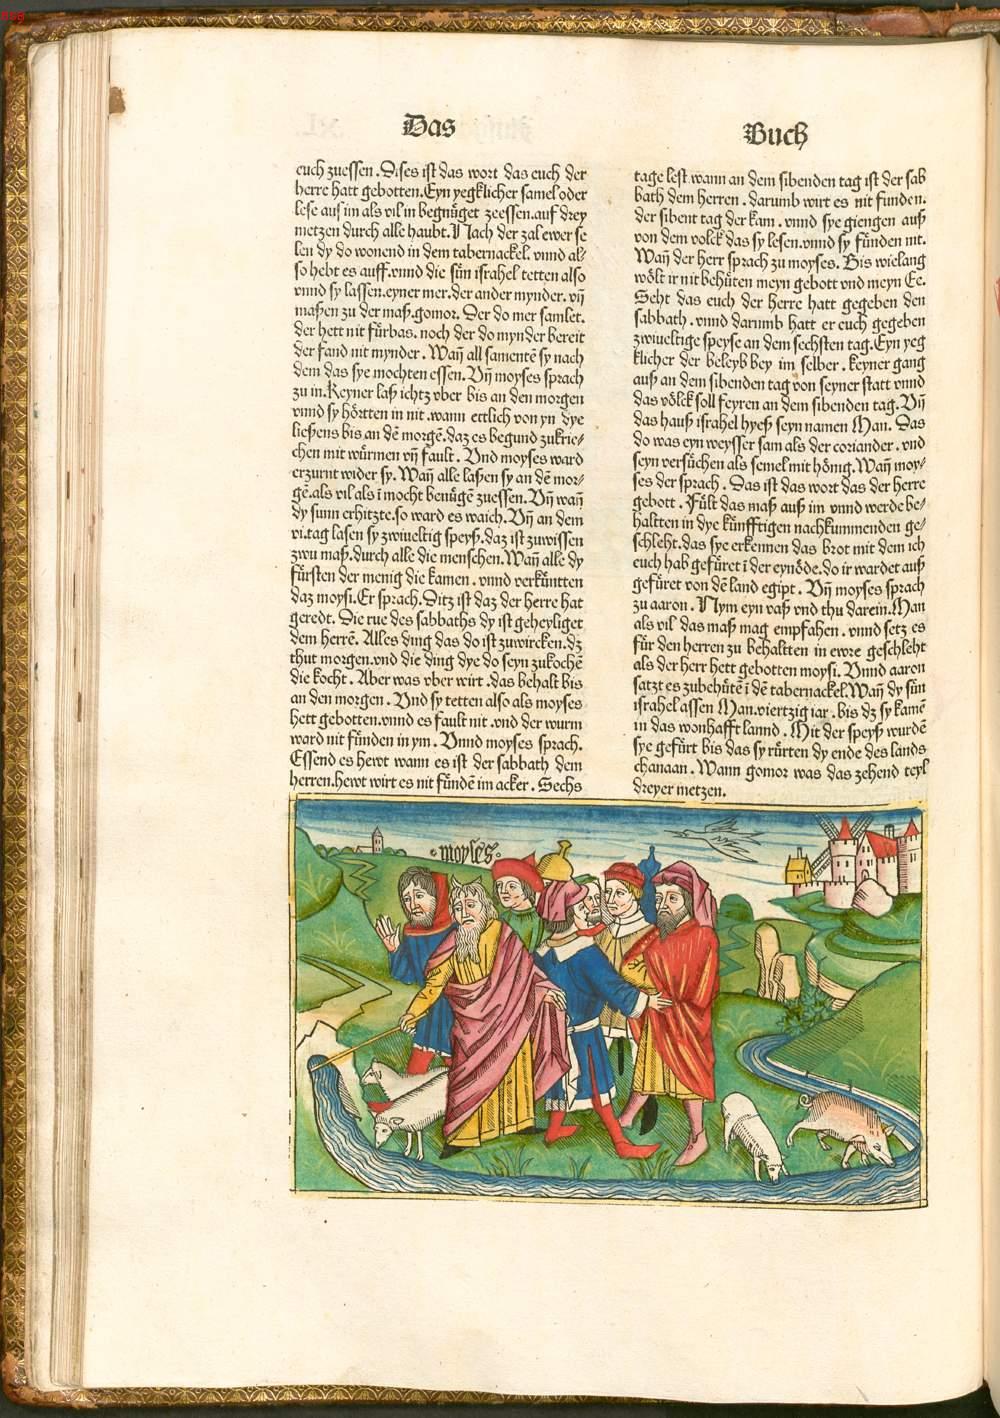 Das
Buch
euch zuessen. Dises ist das wort das euch der
herre hatt gebotten. Eyn yegklicher samel oder
lese auß im als vil in begnüget zeessen. auf drey
metzen durch alle haubt. Nach der zal ewer se
len dy do wonend in dem tabernackel. vnnd al⸗
so hebt es auff. vnnd die sün israhel tetten also
vnnd sy lassen. eyner mer. der ander mynder. vñ
maßen zu der maß. gomoz. Der do mer samlet.
der hett nit fürbas. noch der do mynder bereit
der fand nit mynder. Wañ all samentē sy nach
dem das sye mochten essen. Vñ moyses sprach
zu in. Keyner laß ichtz vber bis an den morgen
vnnd sy hörtten in nit. wann ettlich von yn dye
ließens bis an dē morgē. daz es begund zukrie⸗
chen mit würmen vñ fault. Vnd moyses ward
erzurnt wider sy. Wañ alle lasen sy an dē mor⸗
gē. als vil als ī mocht benügē zuessen. Vñ wañ
dy sunn erhitzte. so ward es waich. Vñ an dem
vi. tag lasen sy zwiueltig speyß. daz ist zuwissen
zwu maß. durch alle die menschen. Wañ alle dy
fürsten der menig die kamen. vnnd verküntten
daz moysi. Er sprach. Ditz ist daz der herre hat
geredt. Die rue des sabbaths dy ist geheyliget
dem herrē. Alles ding das do ist zuwircken. dz
thut morgen. vnd die ding dye do seyn zukochē
die kocht. Aber was vber wirt. das behalt bis
an den morgen. Vnd sy tetten also als moyses
hett gebotten. vnnd es fault nit. vnd der wurm
ward nit fünden in ym. Vnnd moyses sprach.
Essend es hewt wann es ist der sabbath dem
herren. hewt wirt es nit fündē im acker. Sechs
tage lest wann an dem sibenden tag ist der sab
bath dem herren. darumb wirt es nit funden.
der sibent tag der kam. vnnd sye giengen auß
von dem volck das sy lesen. vnnd sy fünden nit.
Wañ der herr sprach zu moyses. Bis wielang
wölt ir nit behüten meyn gebott vnd meyn Ee.
Seht das euch der herre hatt gegeben den
sabbath. vnnd darumb hatt er euch gegeben
zwiueltige speyse an dem sechsten tag. Eyn yeg
klicher der beleyb bey im selber. keyner gang
auß an dem sibenden tag von seyner statt vnnd
das völck soll feyren an dem sibenden tag. Vñ
das hauß israhel hyeß seyn namen Man. Das
do was eyn weysser sam als der coriander. vnd
seyn versüchen als semel mit hönig. Wañ moy⸗
ses der sprach. Das ist das wort das der herre
gebott. Fült das maß auß im vnnd werde be⸗
haltten in dye künfftigen nachkummenden ge⸗
schleht. das sye erkennen das brot mit dem ich
euch hab gefüret ī der eynöde. do ir wardet auß
gefüret von dē land egipt. Vñ moyses sprach
zu aaron. Nym eyn vaß vnd thu darein. Man
als vil das maß mag empfahen. vnnd setz es
für den herren zu behaltten in ewre geschleht
als der herr hett gebotten moysi. Vnnd aaron
satzt es zubehütē ī dē tabernackel. Wañ dy sün
israhel assen Man. viertzig iar. bis dz sy kamē
in das wonhafft lannd. Mit der speyß wurdē
sye gefürt bis das sy rürten dy ende des lands
chanaan. Wann gomor was das zehend teyl
dreyer metzen.
moyses